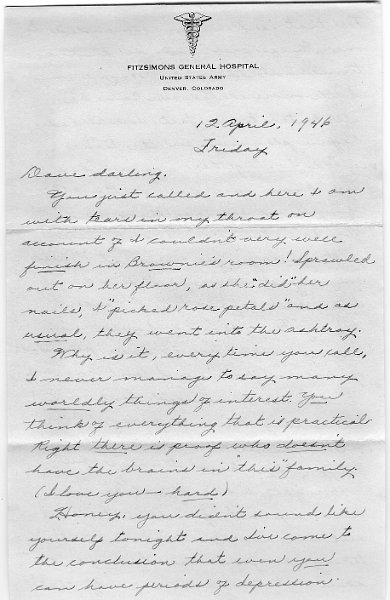 FITZSIMONS GENERAL HOSPITAL
UNITED STATES ARMY
DENVER, COLORADO
12 April, 1946
Friday
Dave darling,
You just called and here I am
with tears in my throat on
account of I couldn't very well
finish in Brownie's room! Sprawled
out on her floor, as she "did" her
nails, I "picked rose petals" and as
usual, they went into the ashtray.
Why is it, every time you call,
I never manage to say many
worldly things of interest. You
think of everything that is practical
Right there is proof who doesn't
have the brains in "this" family.
(I love you - hard)
Honey, you didn't sound like
yourself tonight and I've come to
the conclusion that even you
can have periods of depression.